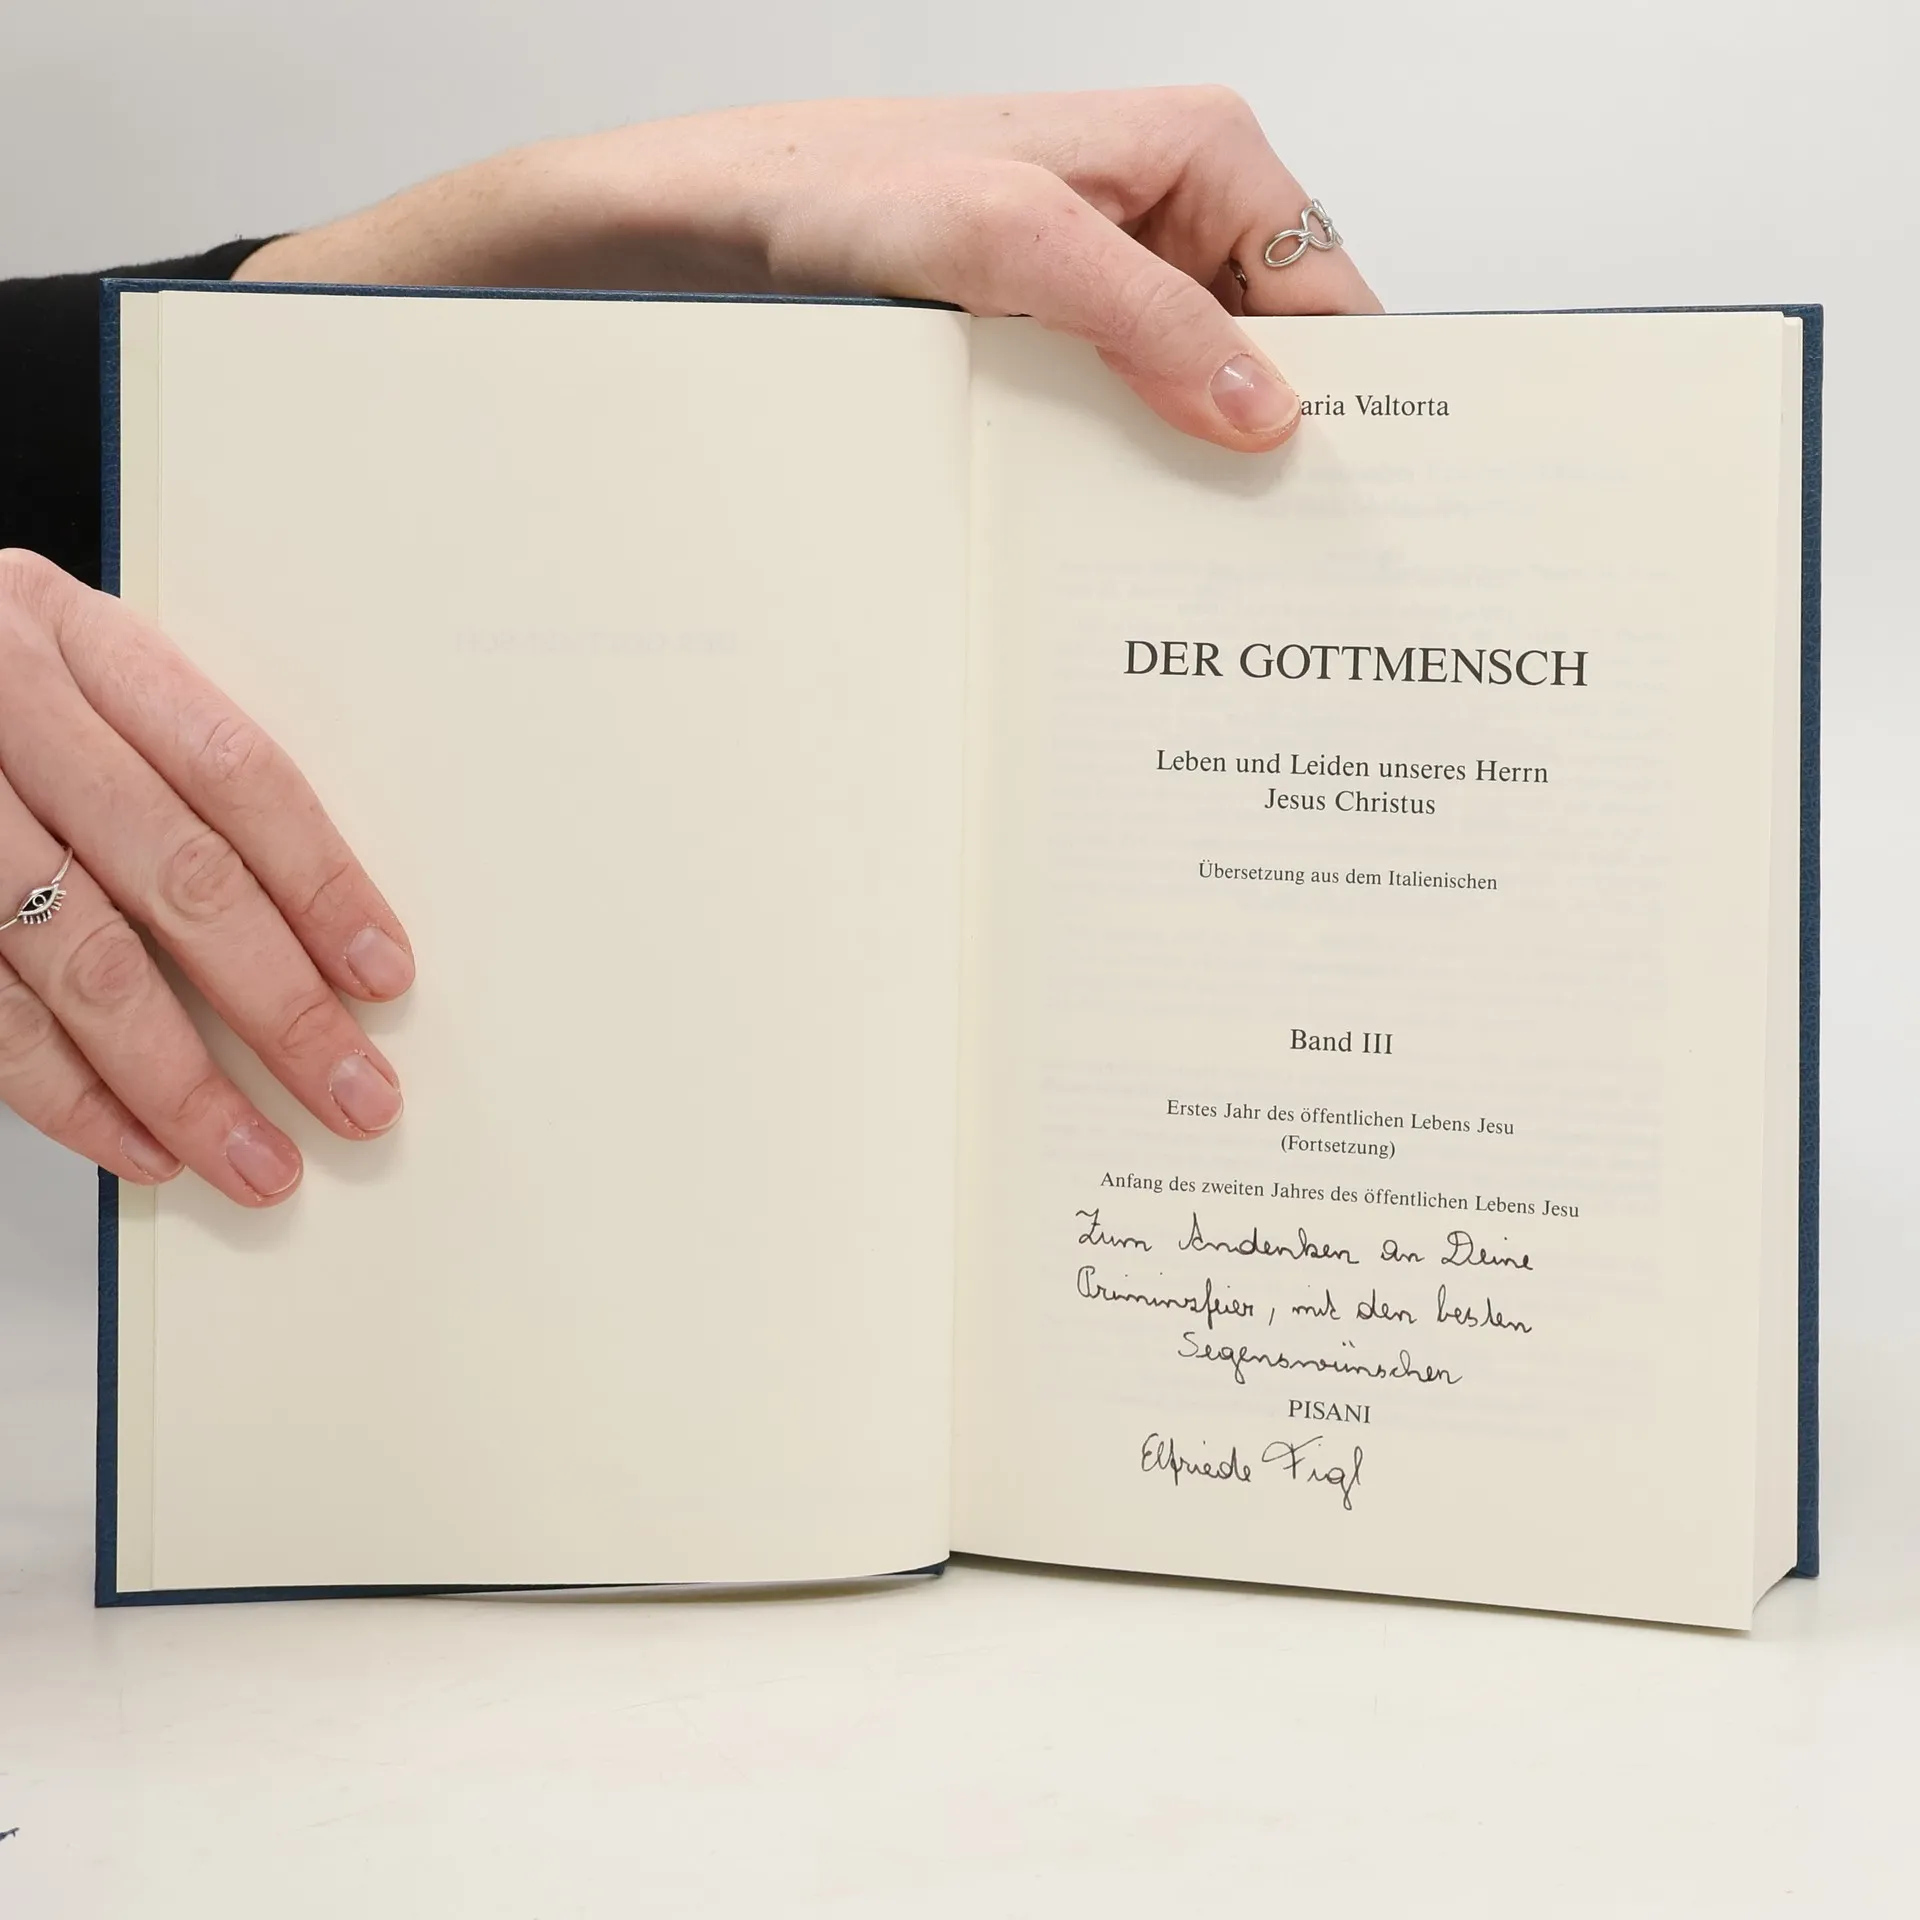 aria Valtorta
DER GOTTMENSCH
Leben und Leiden unseres Herrn
Jesus Christus
Übersetzung aus dem Italienischen
Band III
Erstes Jahr des öffentlichen Lebens Jesu
(Fortsetzung)
Anfang des zweiten Jahres des öffentlichen Lebens Jesu
Zum Andenken an Deine
Priminzfeier, mit den besten
Segenswünschen
PISANI
Elfriede Figl